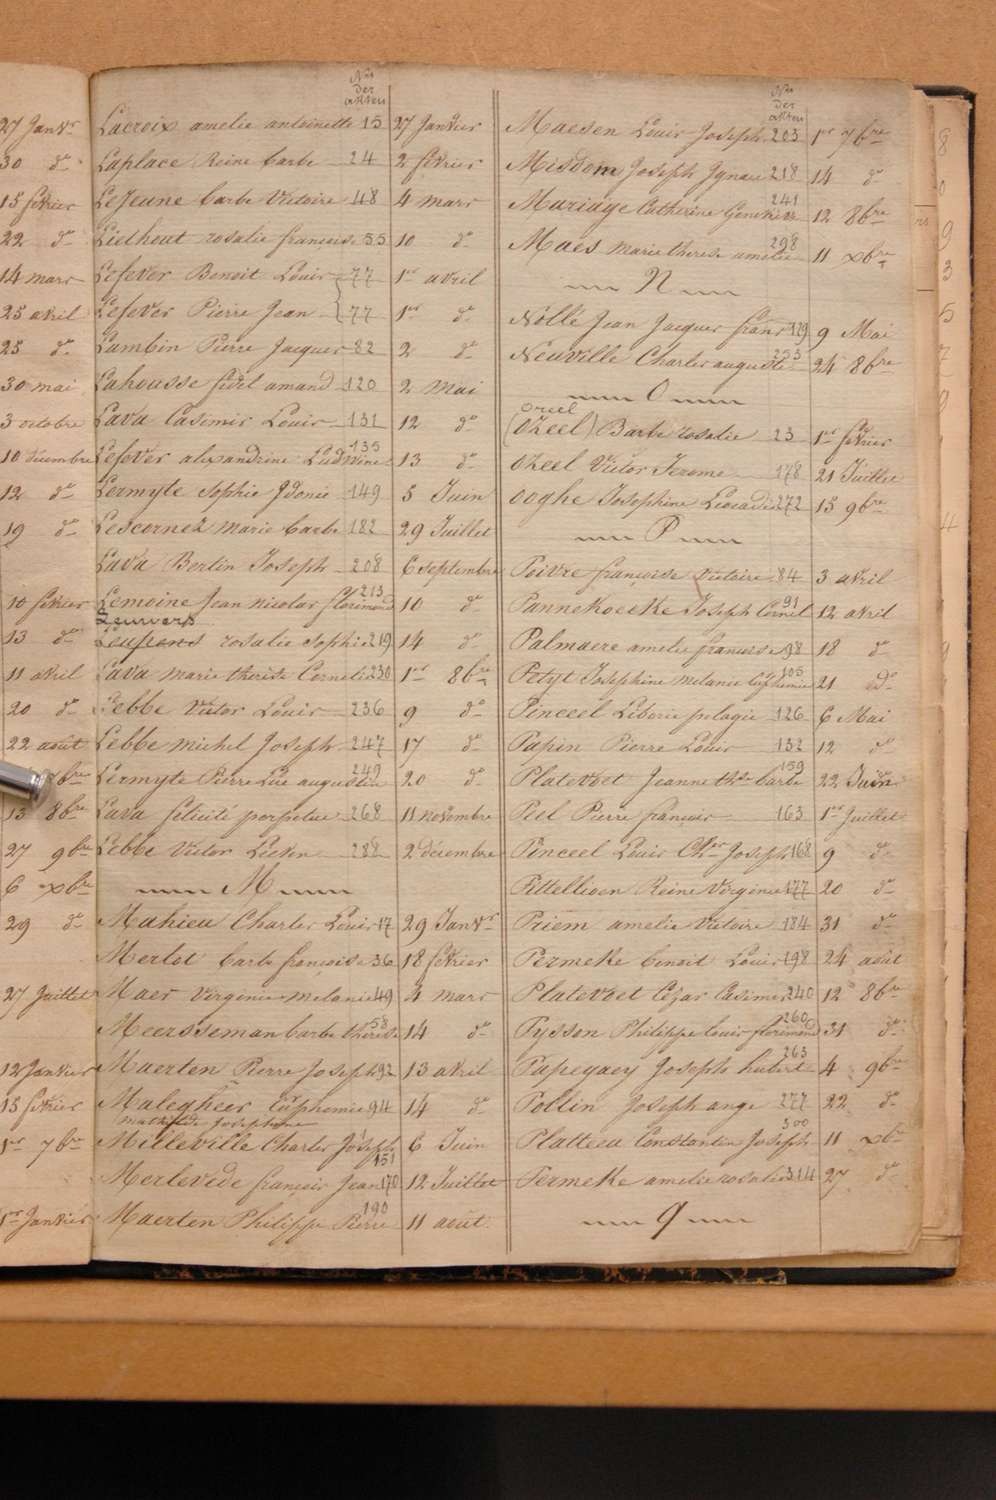 27 Janvr
30 do
15 février
22 do
14 mars
25 avril
25 do
30 mai
3 octobre
10 décembre
12 do
19 do
10 février
13 do
11 avril
20 do
22 août
bre
13 8bre
27 9bre
6 xbre
29 do
27 Juillet
12 Janvier
15 février
1er 7bre
1er Janvier
Nos der akten
Lacroix amelie antoinette 15 27 Janvier
Laplace Reine Barbe 24 2 février
LeJeune barbe Victoire 48 4 mars
Liethout rosalie françoise 55 10 do
Lefever Benoit Louis 77 1er avril
Lefever Pierre Jean 77 1er do
Lambin Pierre Jacques 82 2 do
Lahousse fidel amand 120 2 mai
Lava Casimir Louis 131 12 do
Lefever alexandrine Ludwine 135 13 do
Lermyte Sophie Idonie 149 5 Juin
Lescornez marie barbe 182 29 Juillet
Lava Bertin Joseph 208 6 septembre
Lemoine Jean nicolas florimond 213 10 do
Leurvers
rosalie sophie 219 14 do
Lava marie therèse Cornelie 230 1er 8bre
Lebbe Victor Louis 236 9 do
Lebbe michel Joseph 247 17 do
Lermyte Pierre Luc augustin 249 20 do
Lava félicité perpetue 268 11 novembre
Lebbe Victor Lieven 288 2 décembre
M
Mahieu Charles Louis 17 29 Janvr
Merlot barbe françoise 36 18 février
Maes Virginie melanie 49 4 mars
Meersseman barbe thérèse 58 14 do
Maerten Pierre Joseph 92 13 avril
Malegheer Euphemie 94 14 do
mathilde Josephine
Milleville Charles Joseph 151 6 Juin
Merlevede françois Jean 170 12 Juillet
Maerten Philippe Pierre 190 11 août
Nos der akten
Maesen Louis Joseph 203 1er 7bre
Misdom Joseph Ignace 218 14 do
Mariage Catherine Genevieve 241 12 8bre
Maes marie therese amelie 298 11 xbre
N
Nollé Jean Jacques frans 129 9 Mai
Neuville Charles auguste 253 24 8bre
O
Oreel
(Ozeel) Barbe rosalie 23 1er février
Ozeel Victor Jerome 178 21 Juillet
Ooghe Josephine Leocadie 272 15 9bre
P
Poivre françoise Victoire 84 3 avril
Pannekoecke Joseph Cornil 91 12 avril
Palmaere amelie francoise 98 18 do
Petyt Josephine melanie Euphemie 105 21 do
Pinceel Liborie pelagie 126 6 Mai
Papin Pierre Louis 132 12 do
Platevoet Jeanne thse barbe 159 22 Juin
Peel Pierre françois 163 1er Juillet
Pinceel Louis Chles Joseph 168 9 do
Pittellioen Reine Virginie 177 20 do
Priem amelie Victoire 184 31 do
Permeke benoit Louis 198 24 août
Platevoet Cézar Casimir 240 12 8bre
Pysson Philippe louis florimond 260 31 do
Papegaey Joseph hubert 263 4 9bre
Pollin Joseph ange 277 22 do
Platteeu Constantin Joseph 300 11 xbre
Permeke amelie rosalie 314 27 do
Q